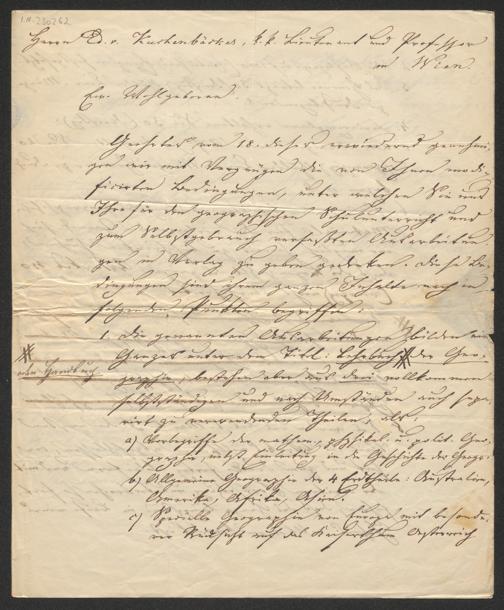 I.N. 230262
Herrn Ed. v. Kuchenbäcker, k. k. Lieutenant und Professor
in Wien.
Ew. Wohlgeboren.
Geehrtes vom 18. dieses erwiedernd genehmi-
gen wir mit Vergnügen die von Ihnen modi-
ficirten Bedingungen, unter welchen Sie uns
Ihre für den geographischen Schulunterricht und
zum Selbstgebrauch verfaßten Ausarbeitun-
gen in Verlag zu geben gedenken. Diese Be-
dingungen sind ihrem ganzen Inhalte nach in
folgenden Punkten begriffen:
1. Die genannten Ausarbeitungen bilden ein
Ganzes unter dem Titl: Lehrbuch der Geo-
oder Handbuch
graphie, bestehen aber aus drei vollkommen
selbstständigen und nach Umständen auch sepa-
rirt zu verwendenden Theilen, als
a) Vorbegriffe der mathem., physikal. u. polit. Geo-
graphie, nebst Einleitung in die Geschichte der Geogr.
b) Allgemeine Geographie der 4 Erdtheile: Australien,
Amerika, Afrika, Asien.
c) Specielle Geographie von Europa mit besonde-
rer Rücksicht auf das Kaiserthum Oesterreich